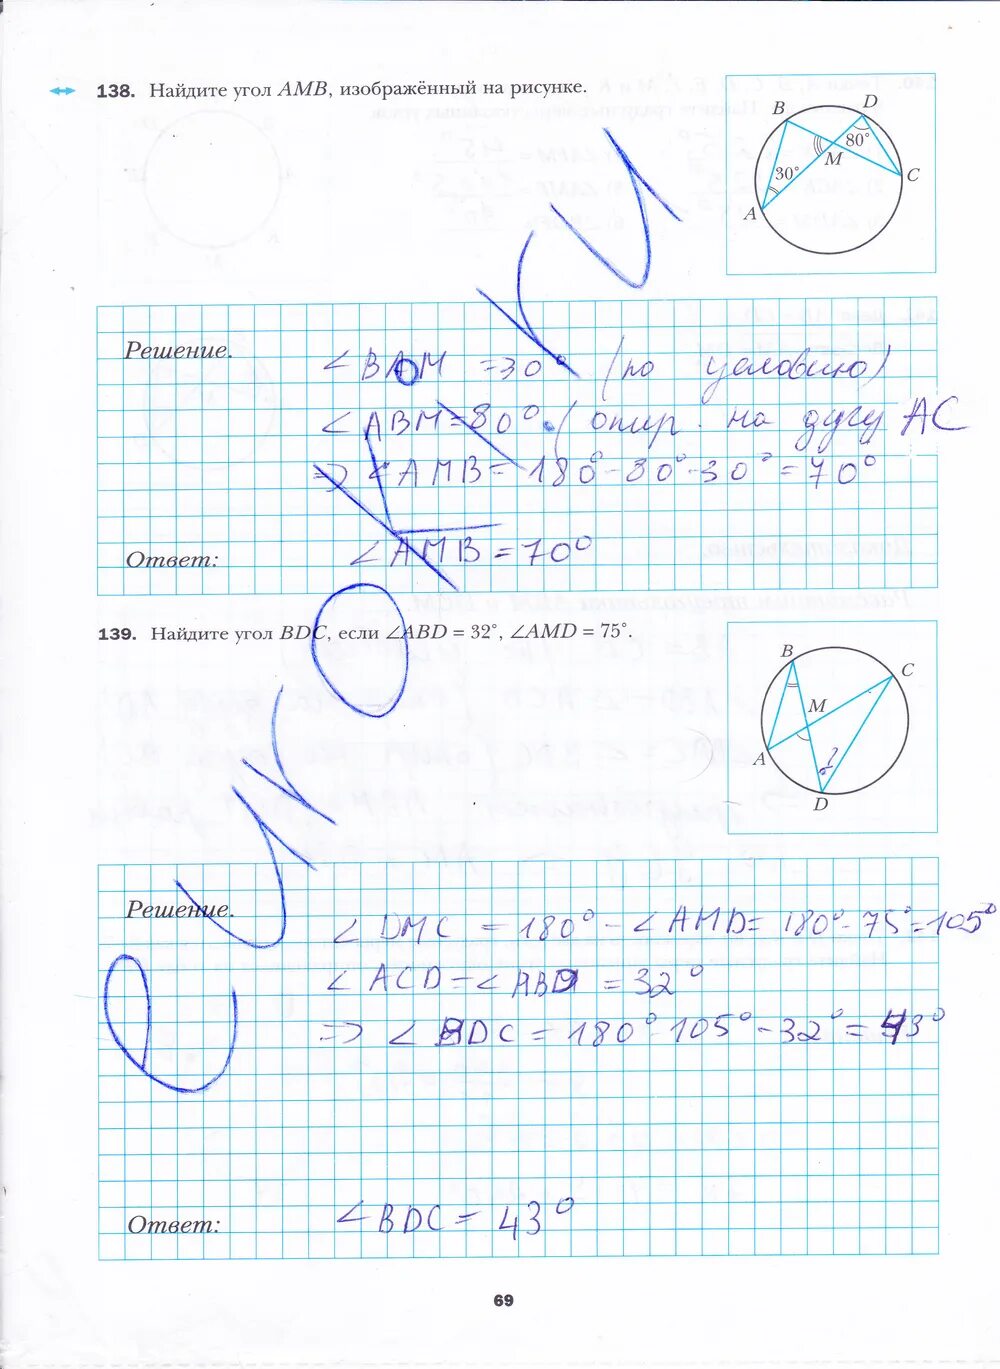 138. Найдите угол AMB, изображённый на рисунке.
B
D
80°
M
30°
C
A
Решение.
∠BAM = 30° (по условию)
∠ABM = 80° (опир. на дугу AC
=> ∠AMB = 180° - 80° - 30° = 70°
Ответ: ∠AMB = 70°
139. Найдите угол BDC, если ∠ABD = 32°, ∠AMD = 75°.
B
C
M
A
?
D
Решение.
∠DMC = 180° - ∠AMD = 180° - 75° = 105°
∠ACD = ∠ABD = 32°
=> ∠BDC = 180° 105° - 32° = 43°
Ответ: ∠BDC = 43°
69